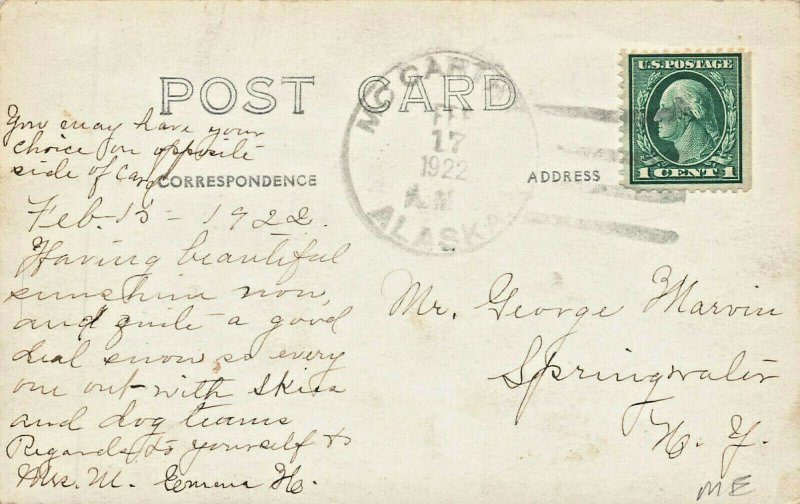 POST CARD
You may have your
choice on opposite
side of Card
CORRESPONDENCE
Feb. 15 - 1922.
Having beautiful
sunshine now,
and quite a good
deal snow so every
one out with skiis
and dog teams
Regards to yourself &
Mrs. M. Emma H.
McCARTHY
FEB
17
1922
M
ALASKA
U.S. POSTAGE
1 CENT 1
ADDRESS
Mr. George Marvin
Springwater
N. Y.
ME